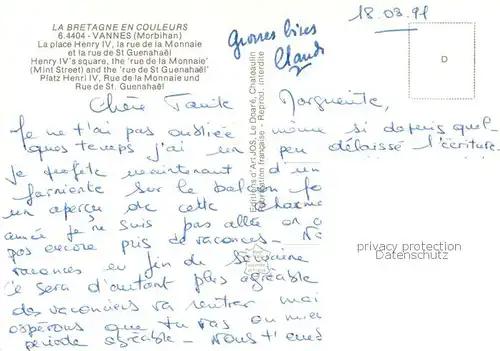 LA BRETAGNE EN COULEURS
6.4404 - VANNES (Morbihan)
La place Henry IV, la rue de la Monnaie
et la rue de St Guenahaël
Henry IV's square, the 'rue de la Monnaie'
(Mint Street) and the 'rue de St Guenahaël'
Platz Henri IV, Rue de la Monnaie und
Rue de St. Guenahaël
18.03.91
Grosses bises
Claude
D
Editions d'Art JOS, Le Doaré, Chateaulin
Fabrication française - Reprod. interdite
Chère Marguerite,
Je ne t'ai pas oubliée même si depuis quel
ques temps j'ai un peu délaissé l'écriture.
Je profite maintenant d'un
farniente sur le balcon
un aperçu de cette
année je ne suis pas allée
pas encore pris de vacances -
vacances en fin de semaine
Ce sera d'autant plus agréable
des vacanciers va rentrer mai
espérons que tu vas au mieu
période agréable - Nous t'
privacy protection
Datenschutz